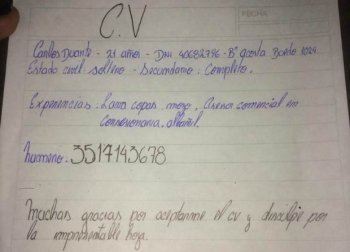 FECHA
C.V
Carlos Duarte - 21 años - DNI 40682796 - B° acosta Bordo 1024.
Estado civil soltero - Secundario: Completo.
Experiencias: Lava copas, mozo, Asesor comercial en
Concesionaria, albañil.
Numero: 3517143678
Muchas gracias por aceptarme el cv y disculpe por
la impresentable hoja.